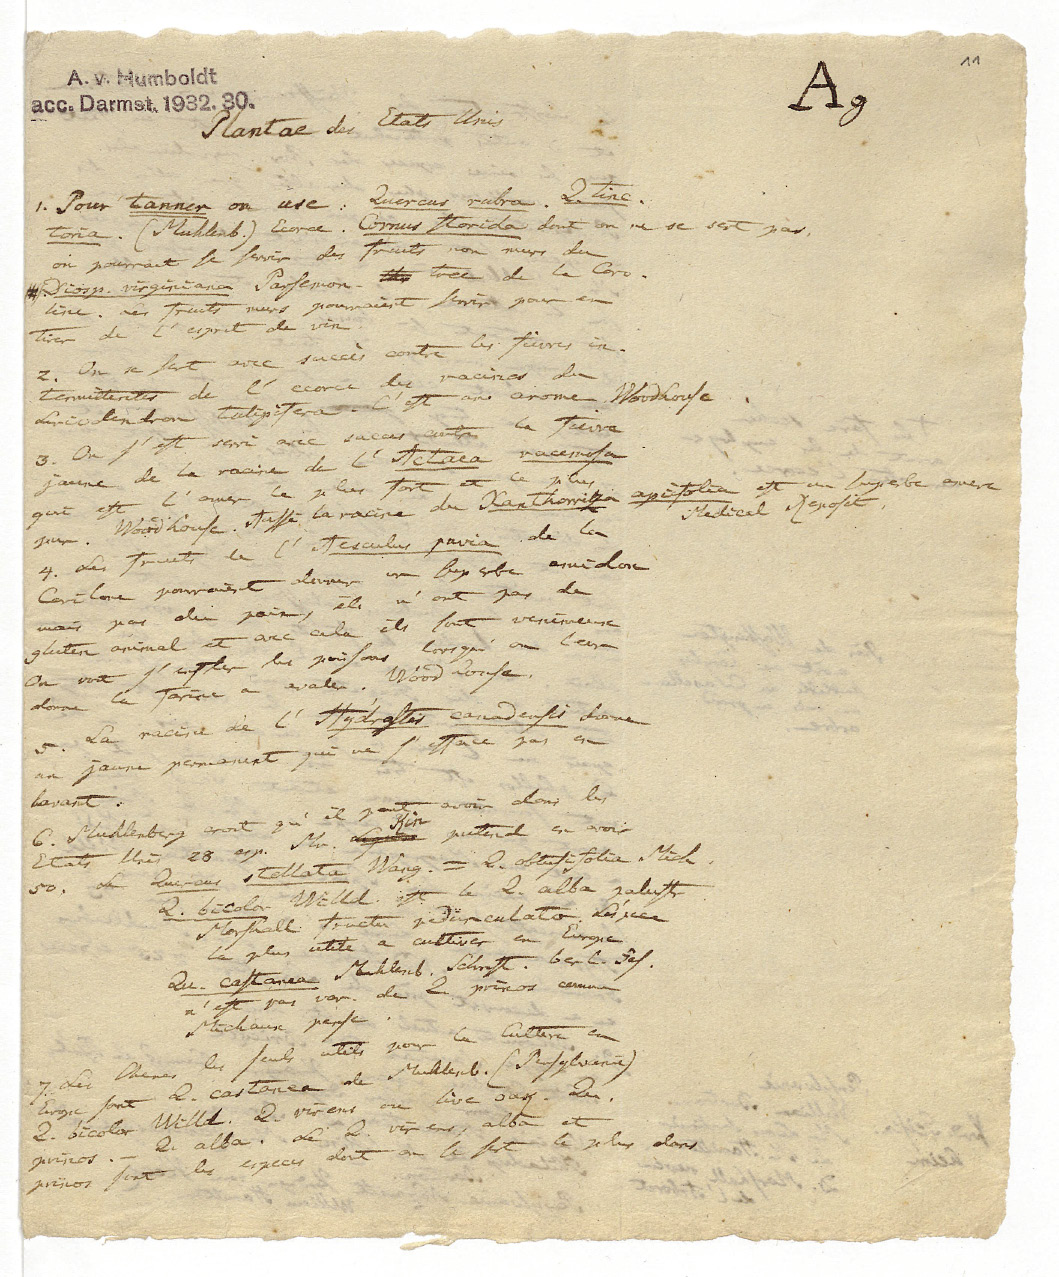 11
Ag
A. v. Humboldt
acc. Darmst. 1932. 30.
Plantae des Etats Unis
1. Pour tanner on use : Quercus rubra. Q. tinc.
toria. (Muhlenb.) Ecorce. Cornus florida dont on ne se sert pas,
on pourrait se servir des fruits non murs du
Diosp. virginiana Persemon- tree de la Caro-
line. Les fruits murs pourraient servir pour en
tirer de l'esprit de vin
2. On se sert avec succès contre les fievres in-
termittentes de l'ecorce des racines du
Liriodendron tulipifera. C'est un arome Woodhouse.
3. On s'est servi avec succes contre la fievre
jaune de la racine de l'Actaea racemosa
qui est l'amer le plus fort et le plus
pur. Woodhouse. Aussi la racine du Xanthorriza apiifolia est un superbe amere
Medical Reposit.
4. Les fruits de l'Aesculus pavia de la
Caroline pourraient donner un superbe amidon
mais pas du pain, ils n'ont pas de
gluten animal et avec cela ils sont venimeux
On voit s'enfler les poissons lorsqu'on leur
donne la farine a avaler. Woodhouse.
5. La racine de l'Hydrastis canadensis donne
un jaune permanent qui ne s'efface pas en
lavant.
6. Muhlenberg croit qu'il peut y avoir dans les
Etats Unis 28 esp. Mr. Kin pretend en avoir
50. Le Quercus stellata Wang. = Q. obtusifolia Mich.
Q. bicolor Willd. est le Q. alba palustr.
Marshall fructu pedunculato. L'espece
la plus utile a cultiver en Europe
Qu. castanea Muhlenb. Schrift. berl. Ges.
n'est pas var. de Q. prinos comme
Michaux pense.
7. Les Chenes les seuls utils pour la Culture en
Europe sont Q. castanea de Muhlenb. (Pensylvanie)
Q. bicolor Willd. Q. virens ou live oak. Qu.
prinos. - Q. alba. Le Q. virens, alba et
prinos sont les especes dont on se sert le plus dans